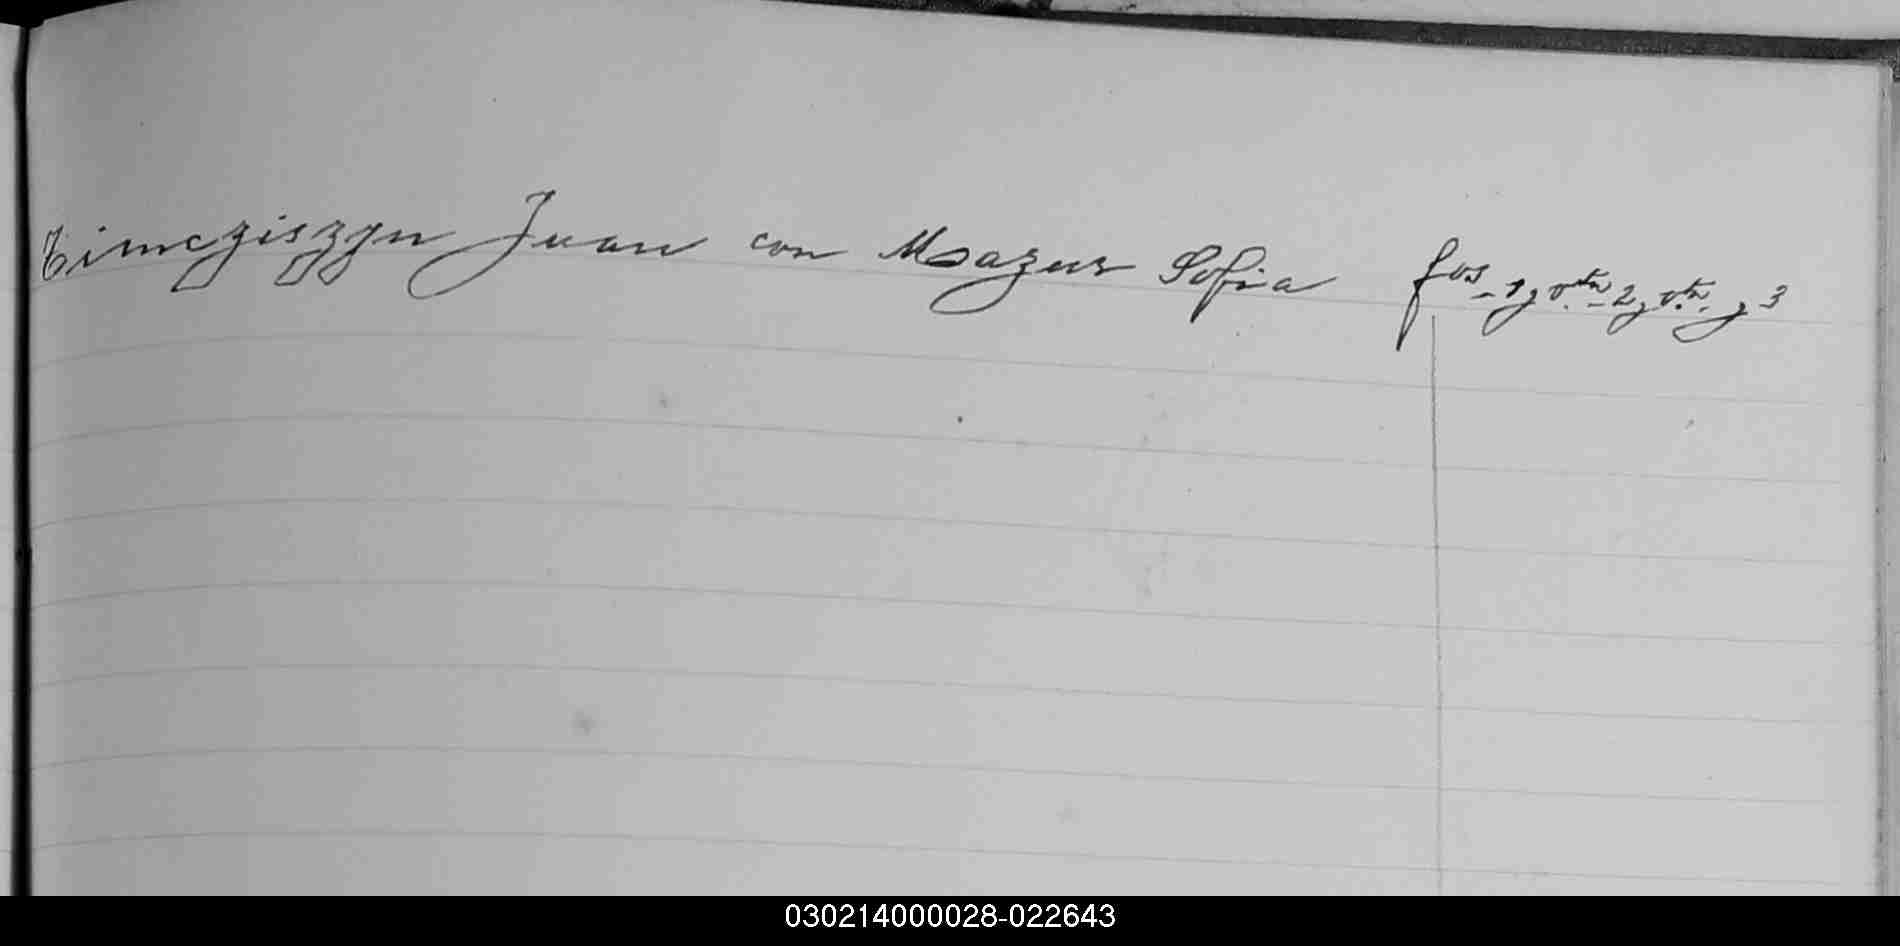 Timcziszyn Juan con Mazur Sofia fos - 1 y vta - 2 y vta. y 3
030214000028-022643